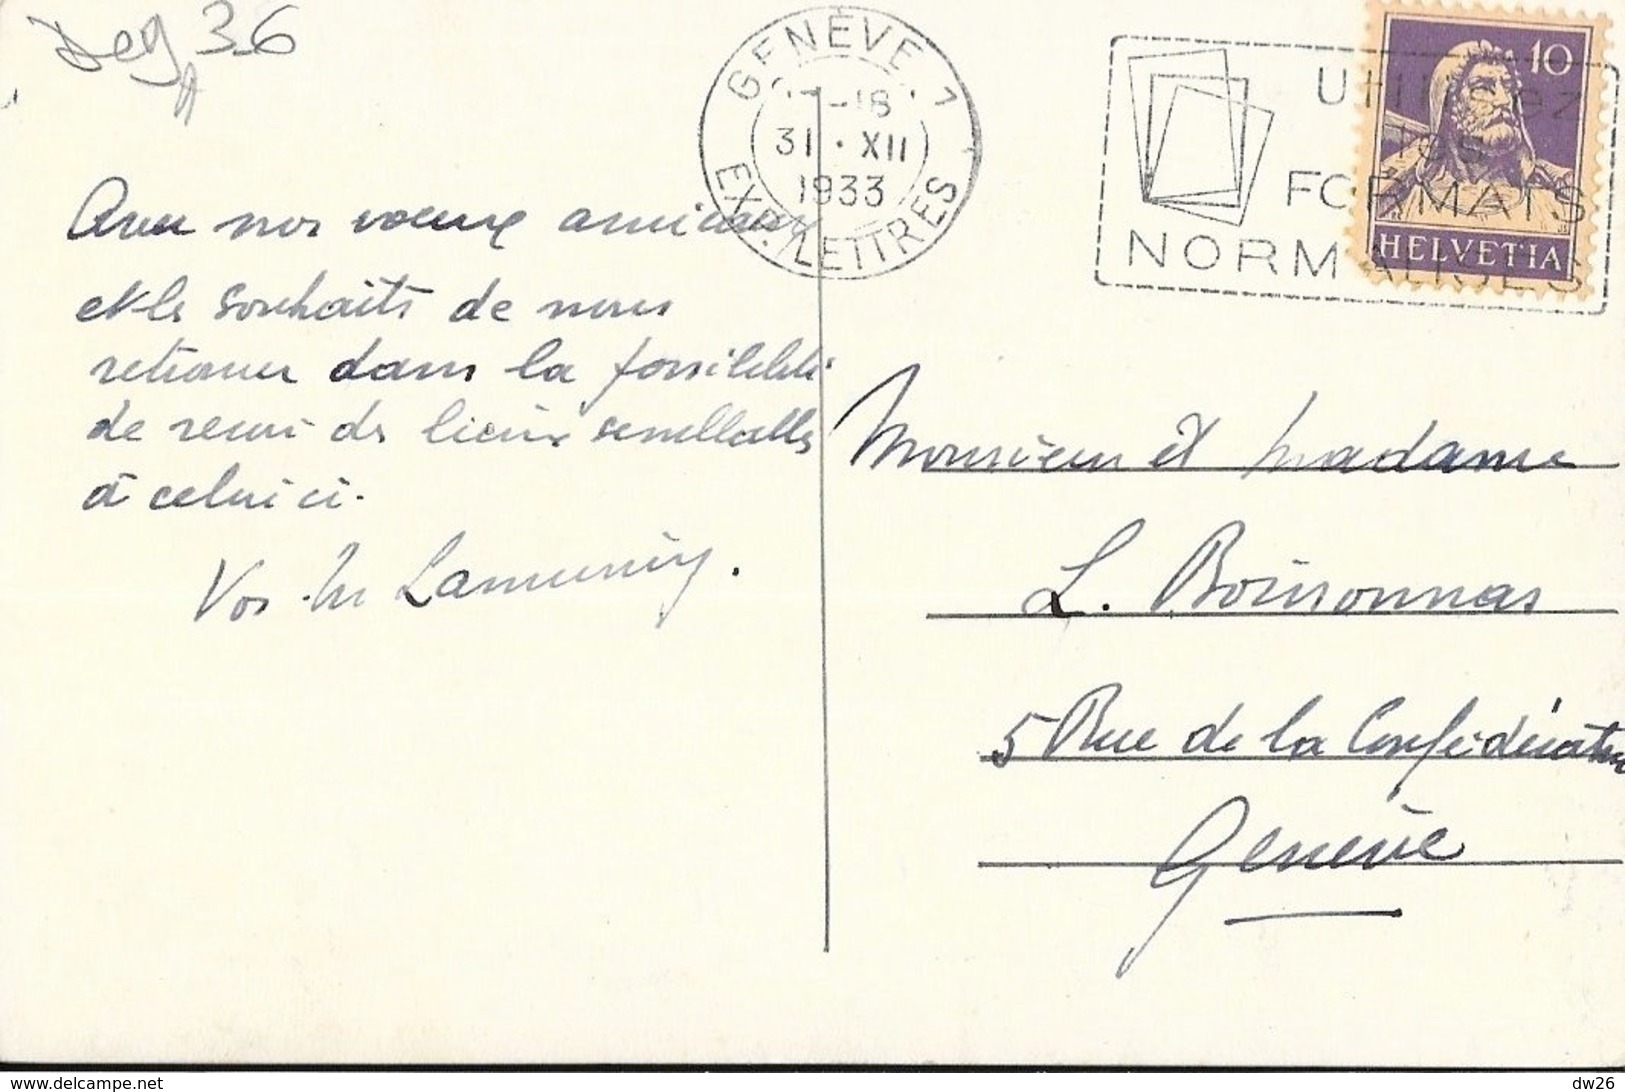 36
GENÈVE 1
-18
31 · XII
1933
EXP. LETTRES
UTILISEZ
les
FORMATS
NORMALISÉS
10
HELVETIA
Avec nos voeux amicaux
et les souhaits de nous
retrouver dans la possibilité
de revoir des lieux semblables
à celui ci.
Vos
Monsieur et Madame
L. Boissonnas
5 Rue de la Confédération
Genève
www.delcampe.net
dw26